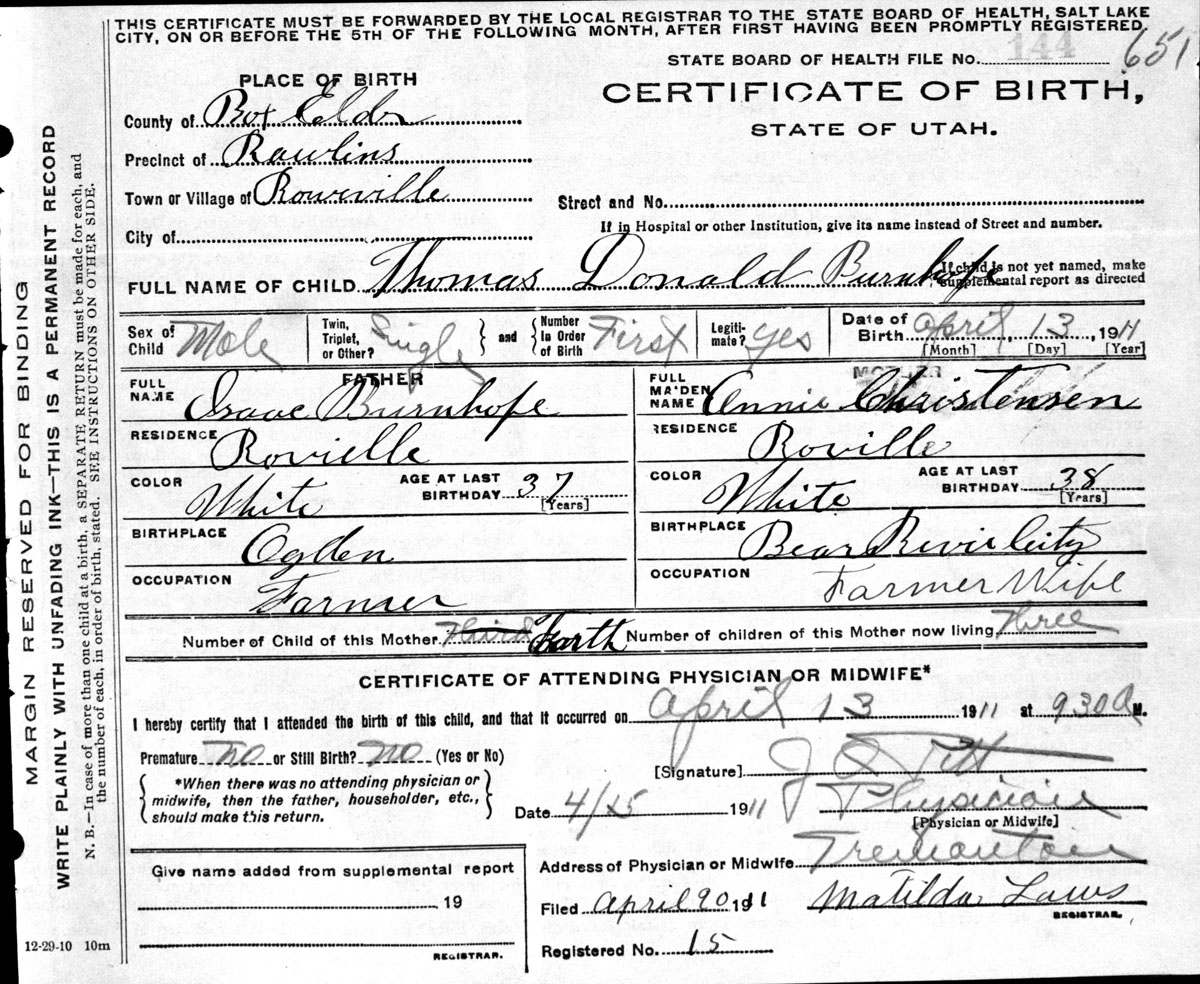 THIS CERTIFICATE MUST BE FORWARDED BY THE LOCAL REGISTRAR TO THE STATE BOARD OF HEALTH, SALT LAKE
CITY, ON OR BEFORE THE 5TH OF THE FOLLOWING MONTH, AFTER FIRST HAVING BEEN PROMPTLY REGISTERED.
STATE BOARD OF HEALTH FILE No. 144 651
PLACE OF BIRTH
CERTIFICATE OF BIRTH,
STATE OF UTAH.
County of Box Elder
Precinct of Rawlins
Town or Village of Roweville
Street and No.
City of
If in Hospital or other Institution, give its name instead of Street and number.
FULL NAME OF CHILD Thomas Donald Burnhope
If child is not yet named, make
supplemental report as directed
Sex of Child Male
Twin, Triplet, or Other? Single
and
Number In Order of Birth First
Legiti-mate? yes
Date of Birth April 13 1911
[Month] [Day] [Year]
FATHER
MOTHER
FULL NAME Isaac Burnhope
FULL MAIDEN NAME Annie Christensen
RESIDENCE Rovielle
RESIDENCE Roville
COLOR White
AGE AT LAST BIRTHDAY 37
[Years]
COLOR White
AGE AT LAST BIRTHDAY 38
[Years]
BIRTHPLACE Ogden
BIRTHPLACE Bear River City
OCCUPATION Farmer
OCCUPATION Farmer Wife
Number of Child of this Mother Third Forth Number of children of this Mother now living Three
CERTIFICATE OF ATTENDING PHYSICIAN OR MIDWIFE*
I hereby certify that I attended the birth of this child, and that it occurred on April 13 1911 at 930 A M.
Premature no or Still Birth? no (Yes or No)
*When there was no attending physician or
midwife, then the father, householder, etc.,
should make this return.
[Signature]
Date 4/15 1911
Physician
[Physician or Midwife]
Address of Physician or Midwife Tremonton
Filed April 20 1911
Matilda Laws
REGISTRAR.
Registered No. 15
Give name added from supplemental report
19
REGISTRAR.
12-29-10 10m
MARGIN RESERVED FOR BINDING
WRITE PLAINLY WITH UNFADING INK—THIS IS A PERMANENT RECORD
N. B.—In case of more than one child at a birth, a SEPARATE RETURN must be made for each, and
the number of each, in order of birth, stated. SEE INSTRUCTIONS ON OTHER SIDE.